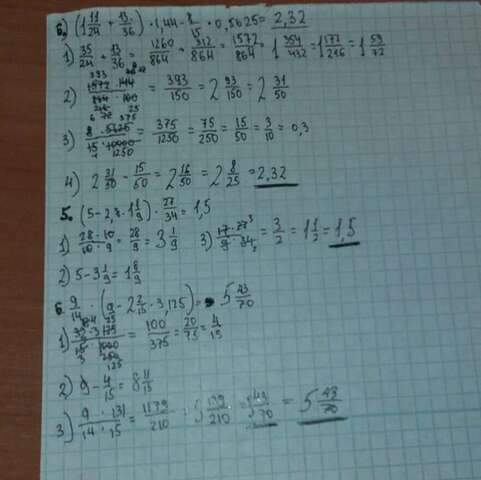 6. (1 11/24 + 13/36) · 1,44 - 8/15 · 0,5625 = 2,32
1) 35/24 + 13/36 = 1260/864 + 312/864 = 1572/864 = 1 354/432 = 1 177/216 = 1 59/72
2) = 393/150 = 2 93/150 = 2 31/50
3) 8 · 5625/15 · 10000 = 375/1250 = 75/250 = 15/50 = 3/10 = 0,3
4) 2 31/50 - 15/50 = 2 16/50 = 2 8/25 = 2,32
5. (5 - 2,8 · 1 1/9) · 27/34 = 1,5
1) 28 · 10/10 · 9 = 28/9 = 3 1/9 3) 17 · 27/9 · 34 = 3/2 = 1 1/2 = 1,5
2) 5 - 3 1/9 = 1 8/9
6 9/14 · (9 - 2 2/15 · 3,125) = 5 43/70
1) = 100/375 = 20/75 = 4/15
2) 9 - 4/15 = 8 11/15
3) 9 · 131/14 · 15 = 1179/210 = 5 129/210 = 5 43/70 = 5 43/70